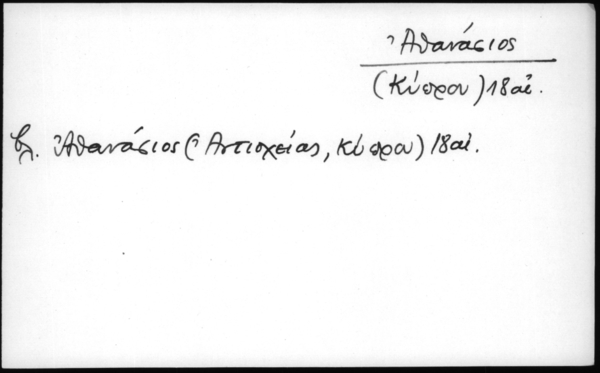 Ἀθανάσιος
(Κύπρου) 18 αἰ.
βλ. Ἀθανάσιος (Ἀντιοχείας, Κύπρου) 18 αἰ.